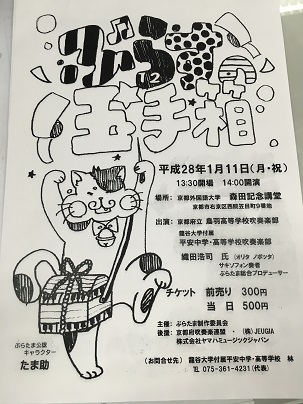 ぶらす
玉手箱
平成28年1月11日(月・祝)
13:30開場 14:00開演
場所: 京都外国語大学 森田記念講堂
京都市右京区西院笠目町6番地
出演: 京都府立 鳥羽高等学校吹奏楽部
龍谷大学付属
平安中学・高等学校吹奏楽部
織田浩司 氏 (オリタ ノボッタ)
サキソフォン奏者
ぶらたま総合プロデューサー
チケット 前売り 300円
当 日 500円
ぶらたま公認
キャラクター
たま助
主催: ぶらたま制作委員会
後援: 京都府吹奏楽連盟 ・ (株) JEUGIA
株式会社ヤマハミュージックジャパン
(お問合せ先) 龍谷大学付属平安中学・高等学校 林
TEL 075-361-4231 (代表)